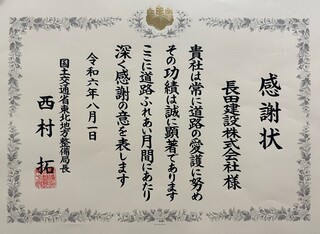 感謝状
長田建設株式会社様
貴社は常に道路の愛護に努め
その功績は誠に顕著であります
ここに道路ふれあい月間にあたり
深く感謝の意を表します
令和六年八月一日
国土交通省東北地方整備局長
西村拓